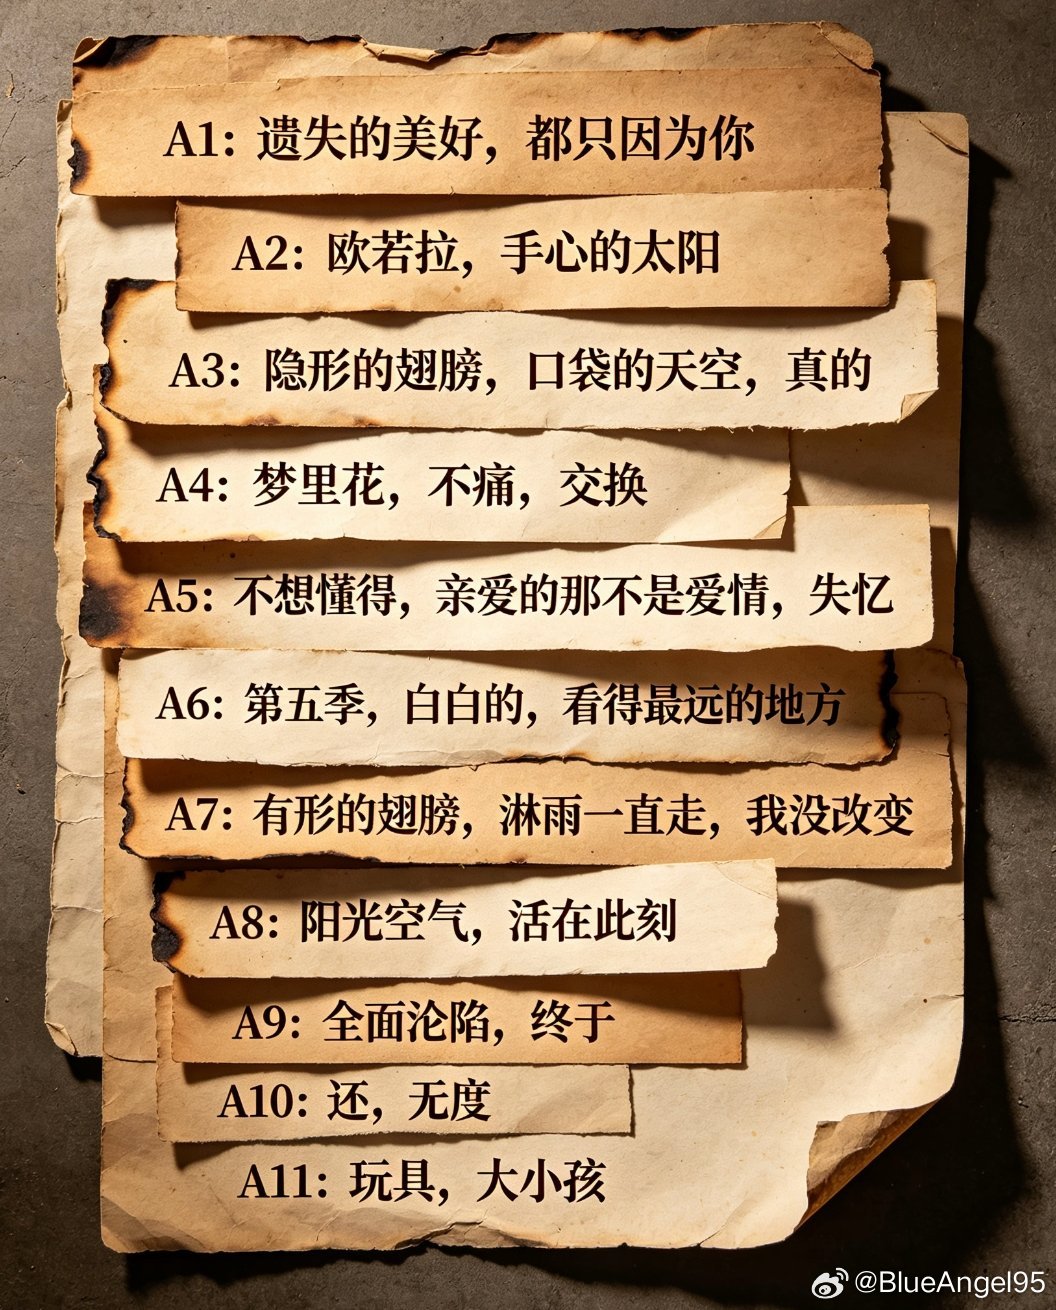 A1: 遗失的美好，都只因为你
A2: 欧若拉，手心的太阳
A3: 隐形的翅膀，口袋的天空，真的
A4: 梦里花，不痛，交换
A5: 不想懂得，亲爱的那不是爱情，失忆
A6: 第五季，白白的，看得最远的地方
A7: 有形的翅膀，淋雨一直走，我没改变
A8: 阳光空气，活在此刻
A9: 全面沦陷，终于
A10: 还，无度
A11: 玩具，大小孩
@BlueAngel95